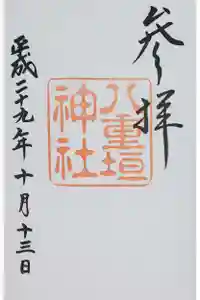 参拝
八重垣
神社
平成二十九年十月十三日